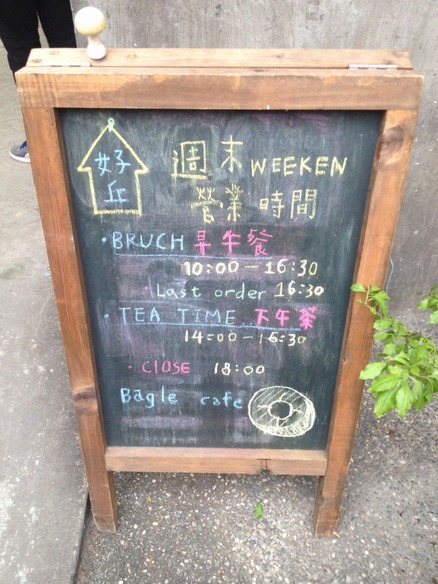 好丘
週末 WEEKEN
營業時間
·BRUCH 早午餐
10:00-16:30
·Last order 16:30
·TEA TIME..下午茶
14:00-16:30
·CLOSE 18:00
Bagle cafe